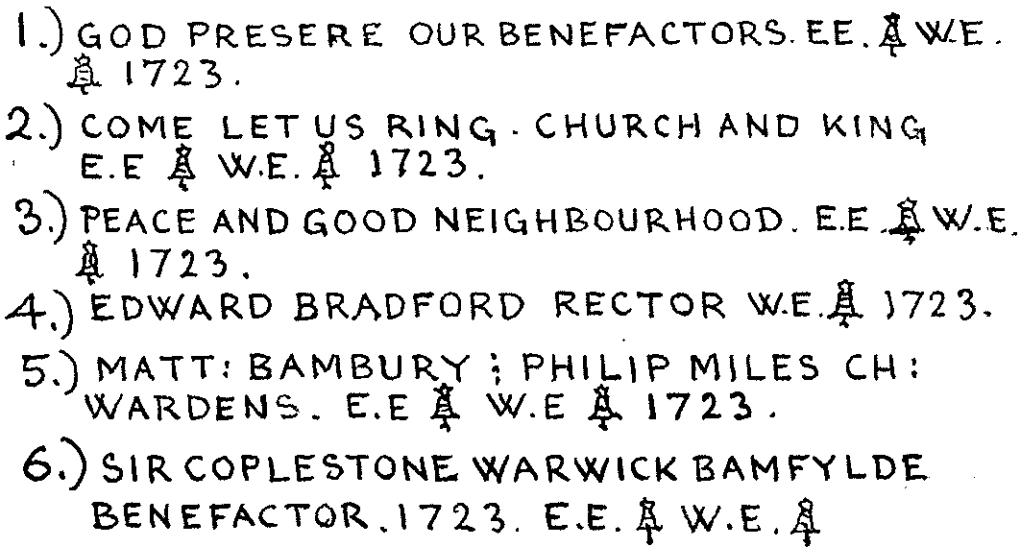 1.) GOD PRESERE OUR BENEFACTORS. E.E. 🔔 W.E.
🔔 1723.
2.) COME LET US RING. CHURCH AND KING
E.E 🔔 W.E. 🔔 1723.
3.) PEACE AND GOOD NEIGHBOURHOOD. E.E. 🔔 W.E.
🔔 1723.
4.) EDWARD BRADFORD RECTOR W.E. 🔔 1723.
5.) MATT: BAMBURY ⁝ PHILIP MILES CH:
WARDENS. E.E 🔔 W.E 🔔 1723.
6.) SIR COPLESTONE WARWICK BAMFYLDE
BENEFACTOR. 1723. E.E. 🔔 W.E. 🔔